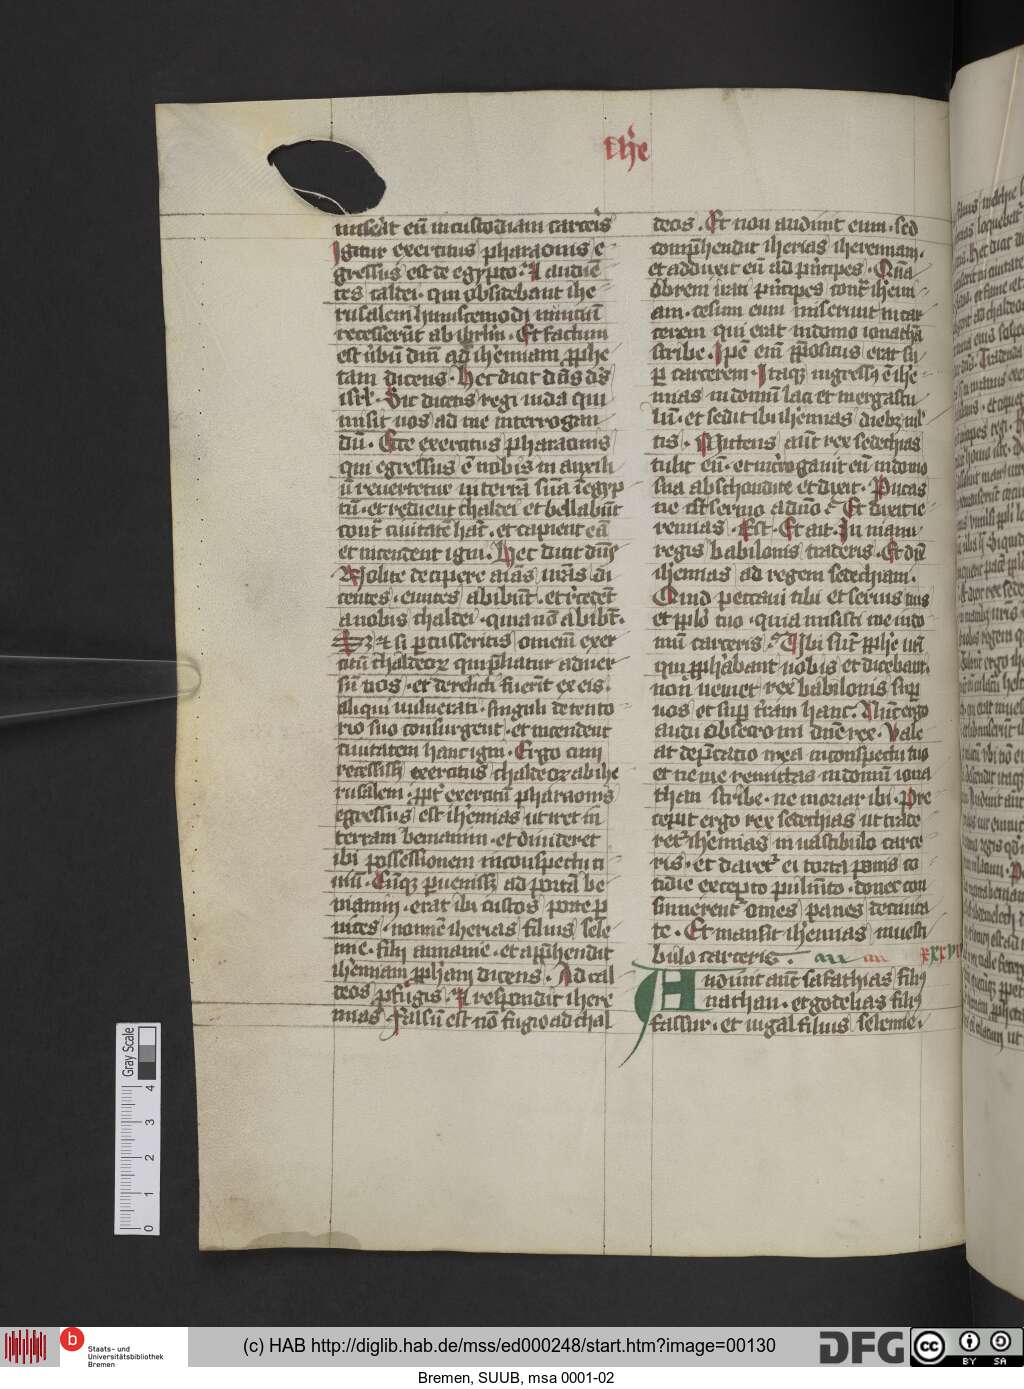 Ihe
miserat eū in custodiam carceris
Igitur exercitus pharaonis e
gressus est de egypto. Et audiē
tes caldei. qui obsidebant ihe
rusalem huiuscemodi nunciū
recesserūt ab ihrlm. Et factum
est ūbū dn̄i ad iheremiam pphe
tam dicens. Hec dicit dn̄s ds̄
isrl. Sic dicetis regi iuda qui
misit uos ad me interrogan
dū. Ecce exercitus pharaonis
qui egressus ē uobis in auxili
ū reuertetur in terrā suā ī egyp
tū. et redient chaldei et bellabūt
cont̄ ciuitatē hāc. et capient eā
et incendent igni. Hec dicit dn̄s
Nolite decipere aīas ur̄as di
centes. euntes abibūt. et recedēt
a nobis chaldei. quia nō abibūt.
et si pcusseritis omnem exer
citū chaldeoꝝ qui pliatur aduer
sū uos. et derelicti fuerīt ex eis.
aliqui uulnerati. singuli de tento
rio suo consurgent. et incendent
ciuitatem hanc igni. Ergo cum
recessiss exercitus chaldeoꝝ ab ihe
rusalem. ppt̄ exercitū pharaonis
egressus est iheremias ut iret in
terram beniamin. et diuideret
ibi possessionem in conspectu ci
uiū. Cūqꝫ puenissꝫ ad portā be
niamin. erat ibi custos porte p
uices. nomine iherias filius sele
mie. filii ananie. et apphendit
iheremiam pphām dicens. Ad cal
deos pfugis. Et respondit ihere
mias Falsū est nō fugio ad chal
deos. Et non audiuit eum. sed
comphendit iherias iheremiam.
et adduxit eū ad pncipes. Quā
obrem irati pncipes contr̄ iheremi
am. cesum eum miserunt in car
cerem qui erat in domo ionathā
scribe. Ipē enī ppositus erat su
p carcerem. Itaqꝫ ingressꝰ ē ihe
mias in domū laci et in ergastu
lū. et sedit ibi iheremias diebꝫ ml
tis. Mittens aūt rex sedechias
tulit eū. et intrrogauit eū in domo
sua abscondite et dixit. Putas
ne est sermo a dn̄o. Et dixit ie
remias. Est. Et ait. In manu
regis babilonis traderis. Et dix̄
iheremias ad regem sedechiam.
Quid peccaui tibi et seruis tuis
et pplo tuo. quia misisti me in do
mū carceris. Ubi sūt pphe ur̄i
qui pphābant uobis et dicebant.
non ueniet rex babilonis sup
uos et sup tr̄am hanc. Nūc ergo
audi obsecro mi dn̄e rex. Vale
at depcatio mea in conspectu tuo
et ne me remittas in domū iona
than scribe. ne moriar ibi. Pre
cepit ergo rex sedechias ut trade
ret iheremias in uastibulo carce
ris. et daret ei torta panis co
tidie excepto pulmto. donec con
sumerent omēs panes de ciuita
te. Et mansit iheremias in uesti
bulo carceris.
Audiuit aūt safathias filiꝰ
nathan. et godelias filiꝰ
fassur. et iugal filius selemie.
Gray Scale
0 1 2 3 4
b Staats- und
Universitätsbibliothek
Bremen
(c) HAB http://diglib.hab.de/mss/ed000248/start.htm?image=00130
DFG
cc BY SA
Bremen, SUUB, msa 0001-02